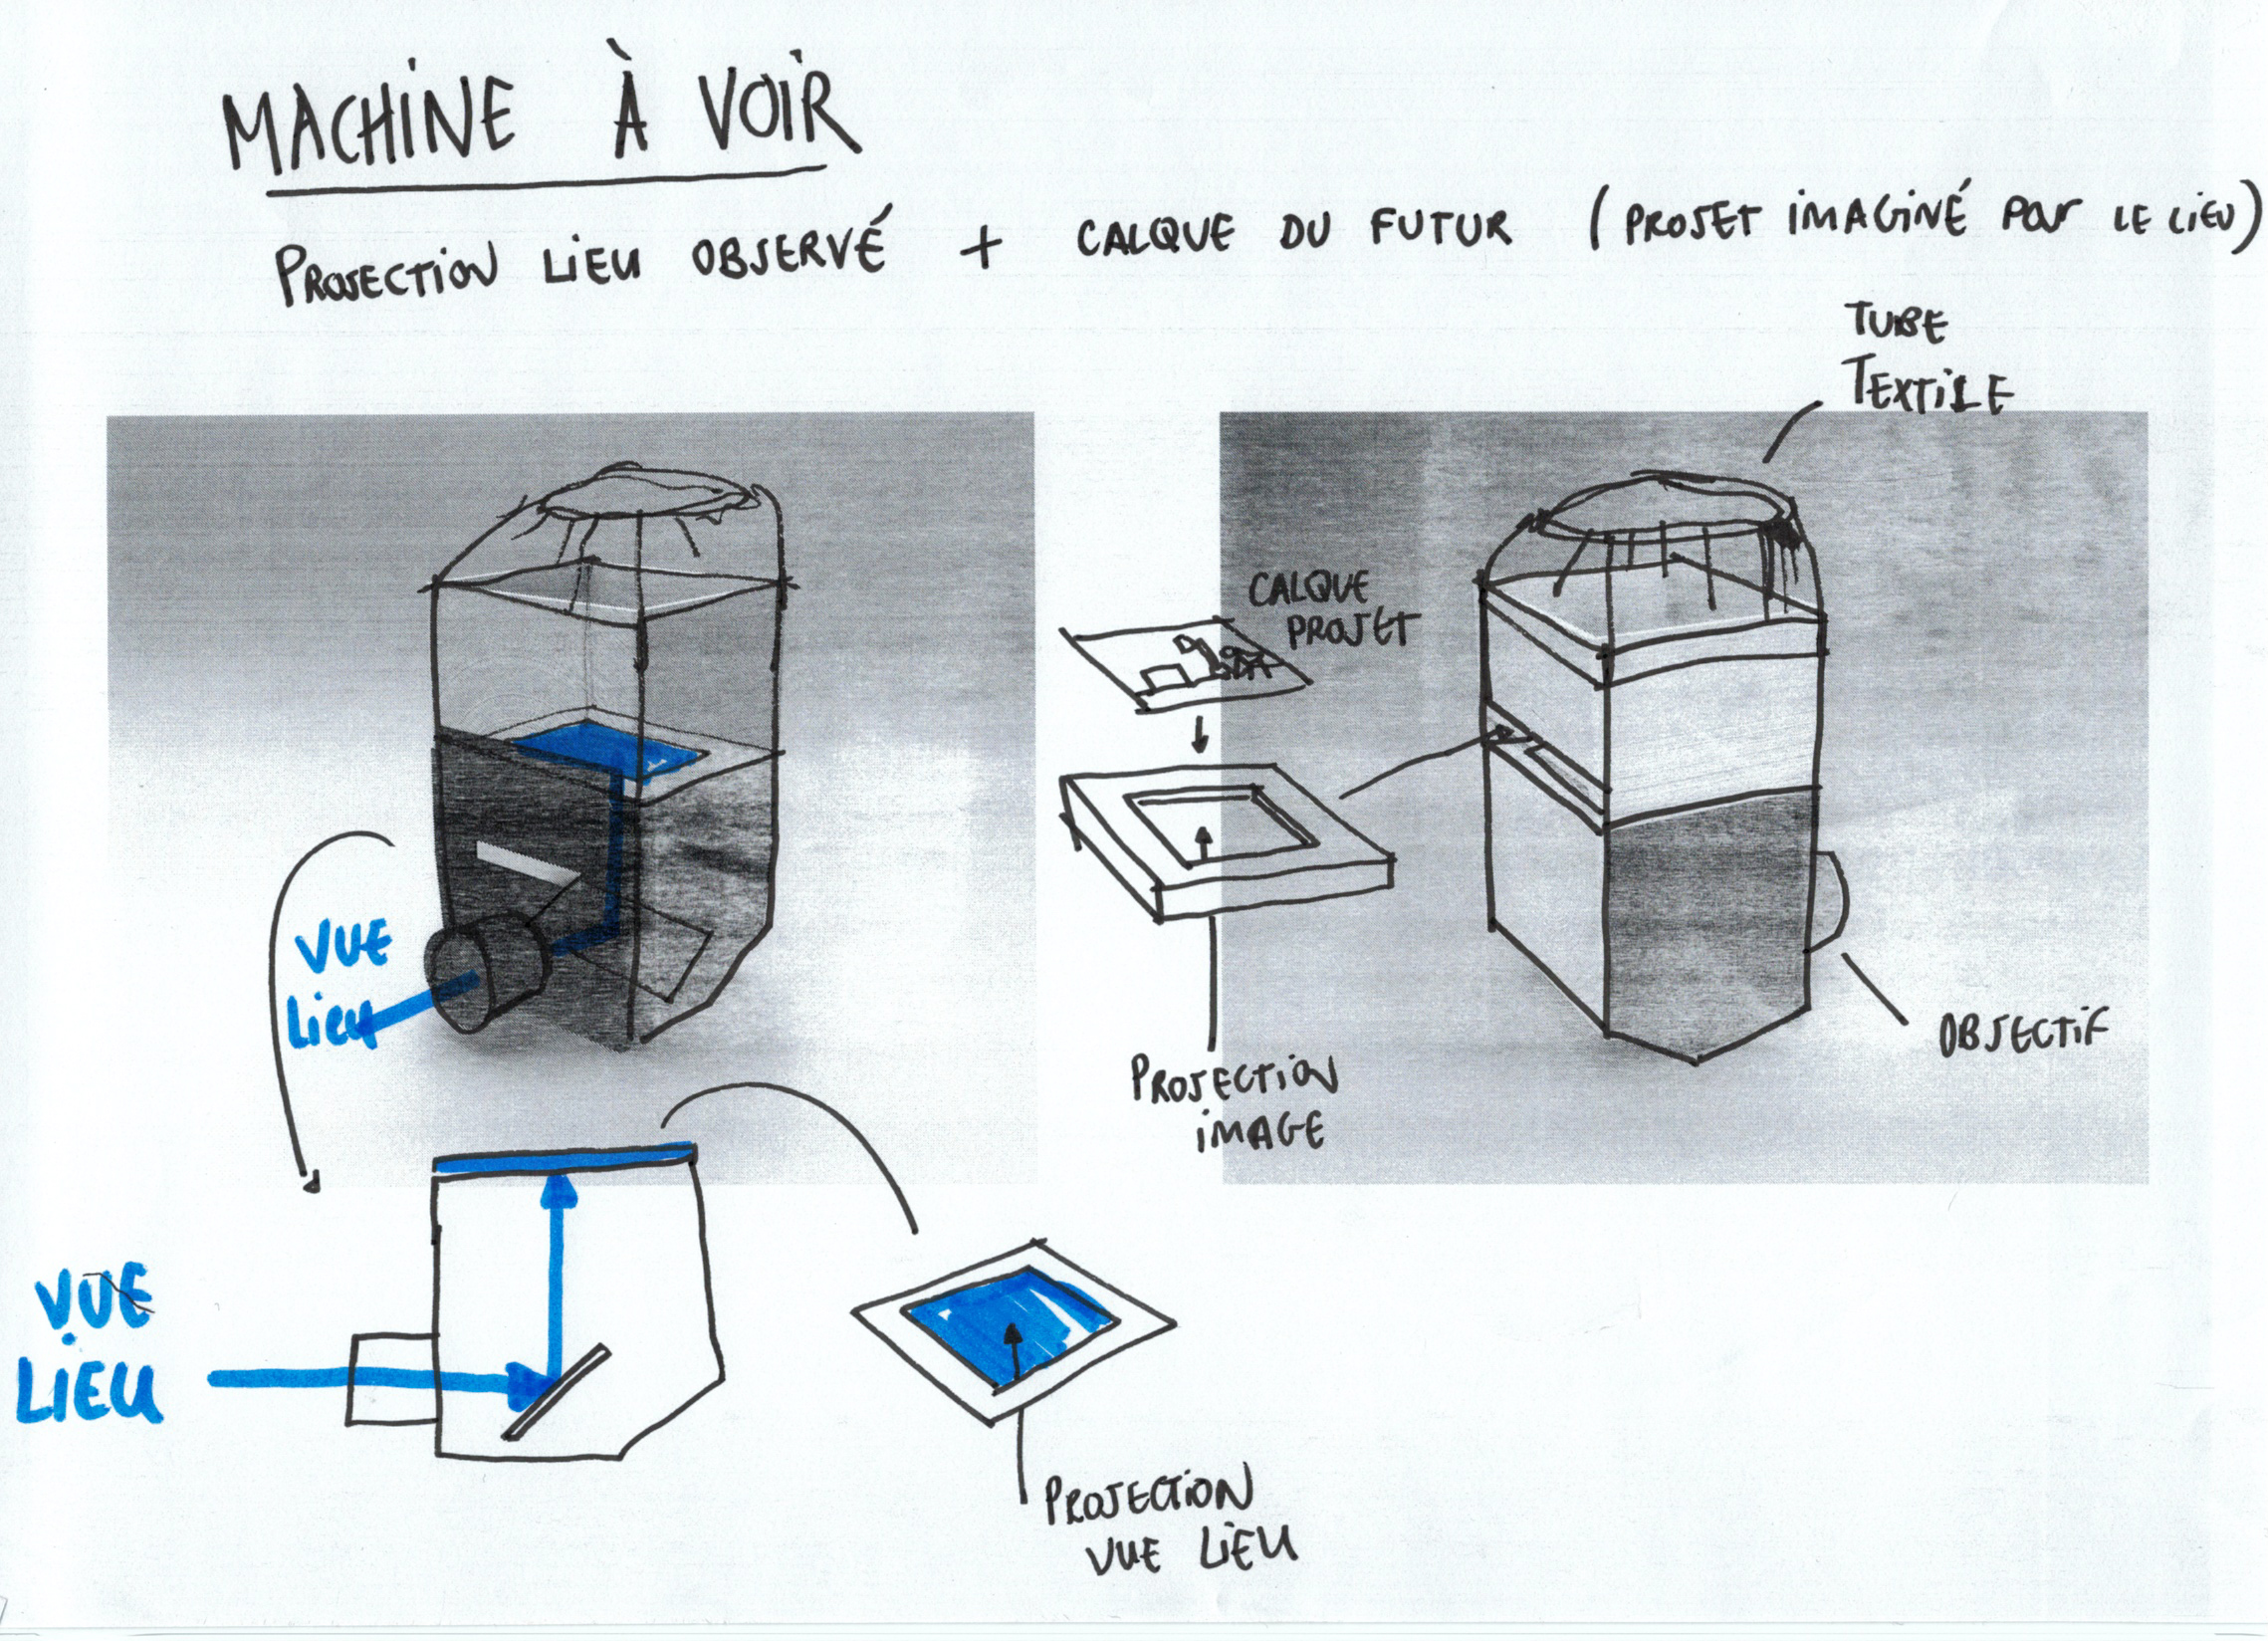 MACHINE À VOIR
PROJECTION LIEU OBSERVÉ + CALQUE DU FUTUR (PROJET IMAGINÉ POUR LE LIEU)
TUBE
TEXTILE
CALQUE
PROJET
VUE
LIEU
OBJECTIF
PROJECTION
IMAGE
VUE
LIEU
PROJECTION
VUE LIEU